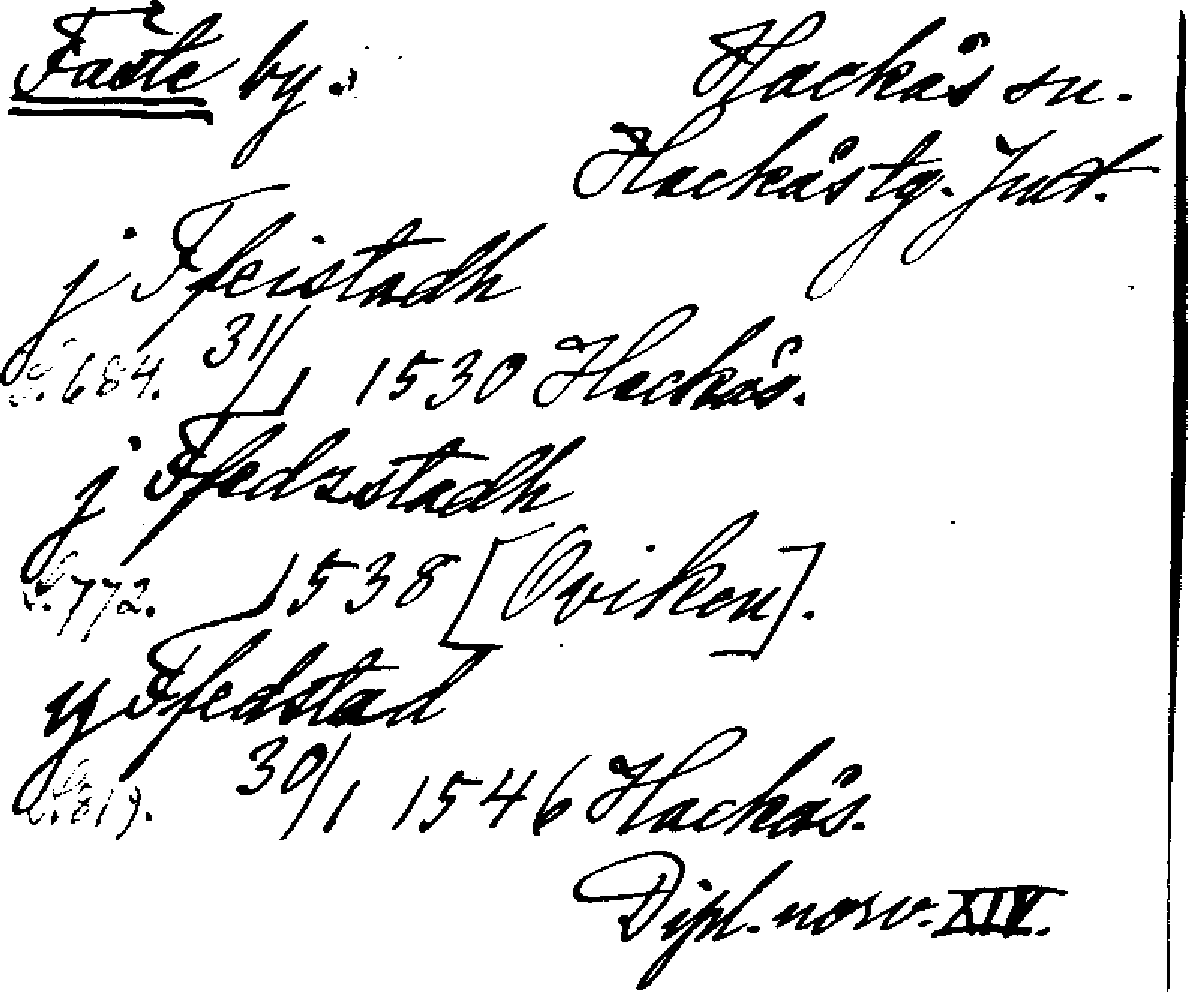 Faste by.
Hackås sn.
Hackås tg. Jmt.
j Ffeistadh
s. 684. 31/1 1530 Hackås.
j Ffedzstadh
s. 772. 1538 [Oviken].
y Ffedstad
s. 819. 30/1 1546 Hackås.
Dipl. norv. XIV.